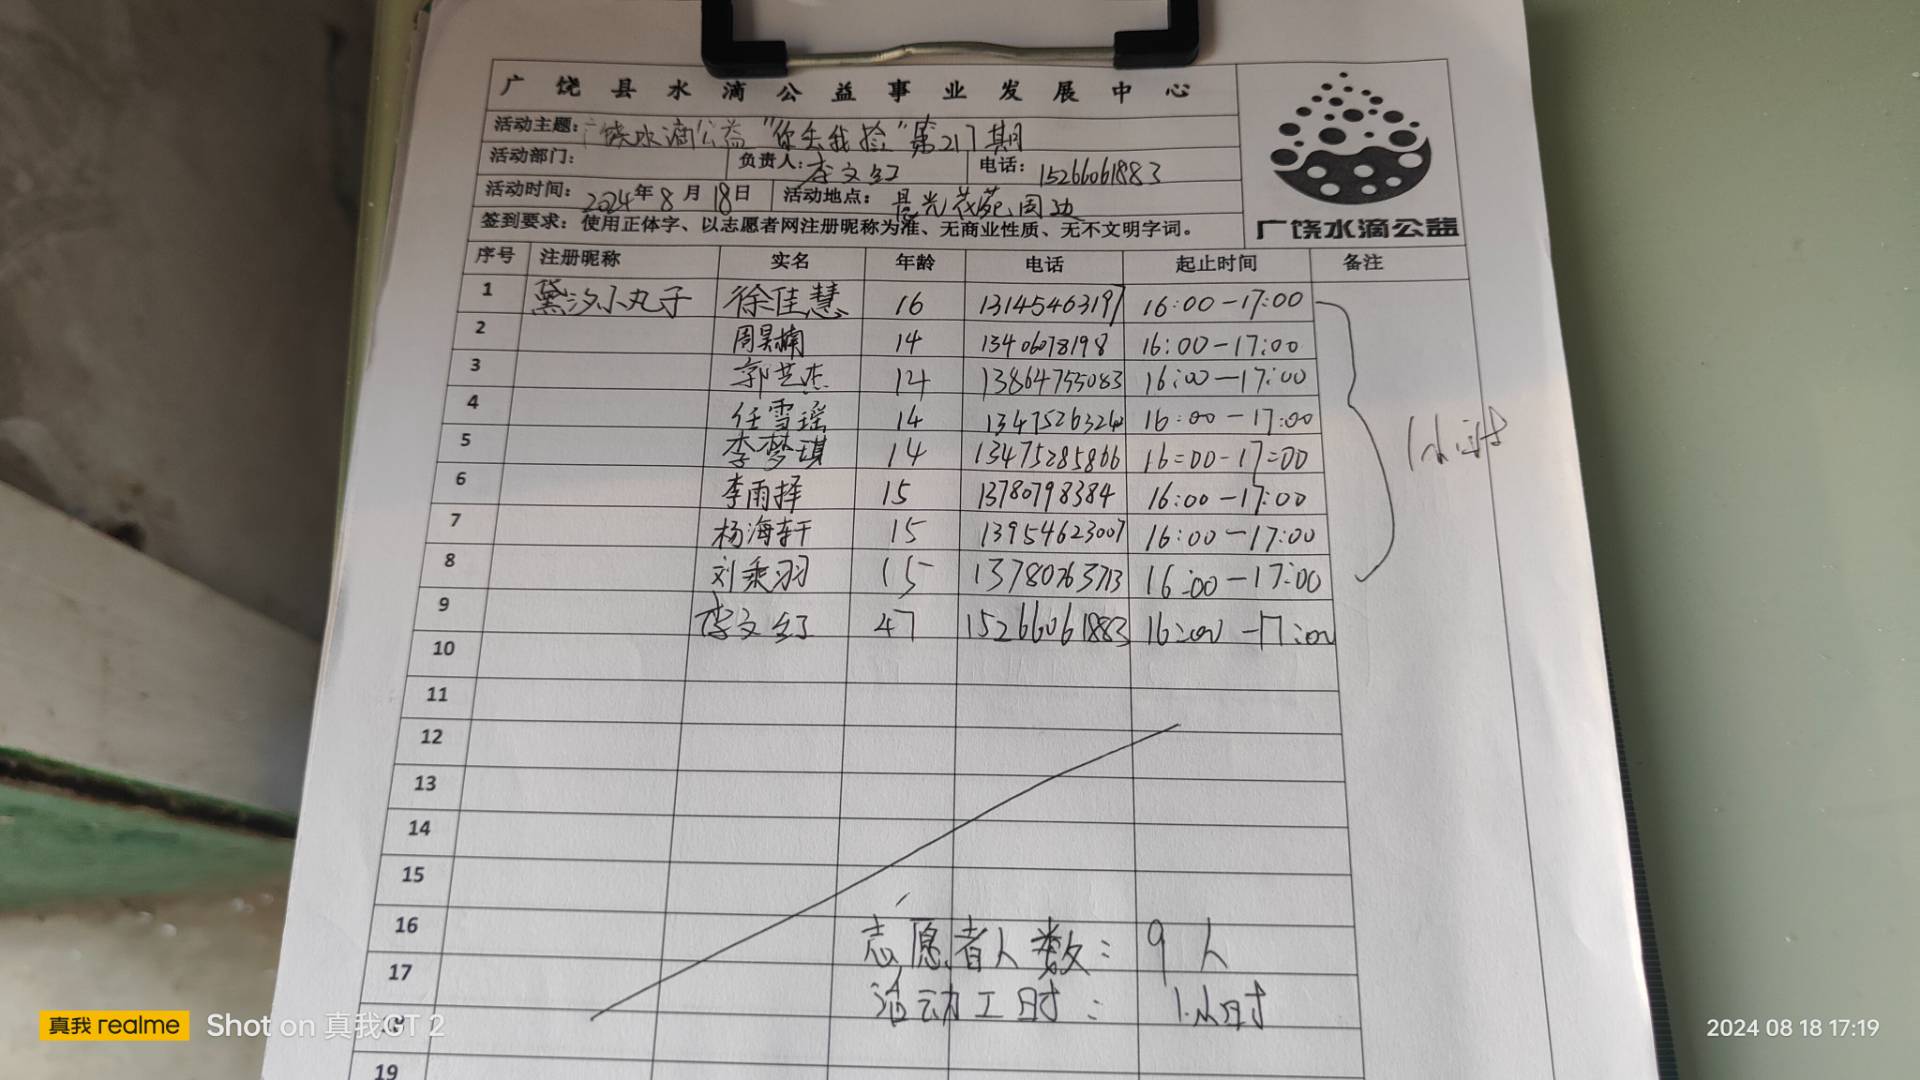 广饶县水滴公益事业发展中心
活动主题: 广饶水滴公益"你丢我捡"第217期
活动部门: 负责人: 李文红 电话: 15266061883
活动时间: 2024年8月18日 活动地点: 晨光花苑周边
签到要求: 使用正体字、以志愿者网注册昵称为准、无商业性质、无不文明字词。
广饶水滴公益
序号 注册昵称 实名 年龄 电话 起止时间 备注
1 黛汐小丸子 徐佳慧 16 13145463197 16:00-17:00
2 周昊楠 14 13406078198 16:00-17:00
3 郭芝杰 14 13864755083 16:00-17:00
4 任雪瑶 14 16:00-17:00
5 李梦琪 14 13475285866 16=00-17=00
1小时
6 李雨择 15 13780798384 16:00-17:00
7 杨海轩 15 13954623007 16:00-17:00
8 刘乘羽 15 13780763713 16:00-17:00
9 李文红 47 15266061883 16:00-17:00
10
11
12
13
14
15
16 志愿者人数: 9人
17 活动工时: 1小时
18
19
真我 realme Shot on 真我GT 2
2024 08 18 17:19